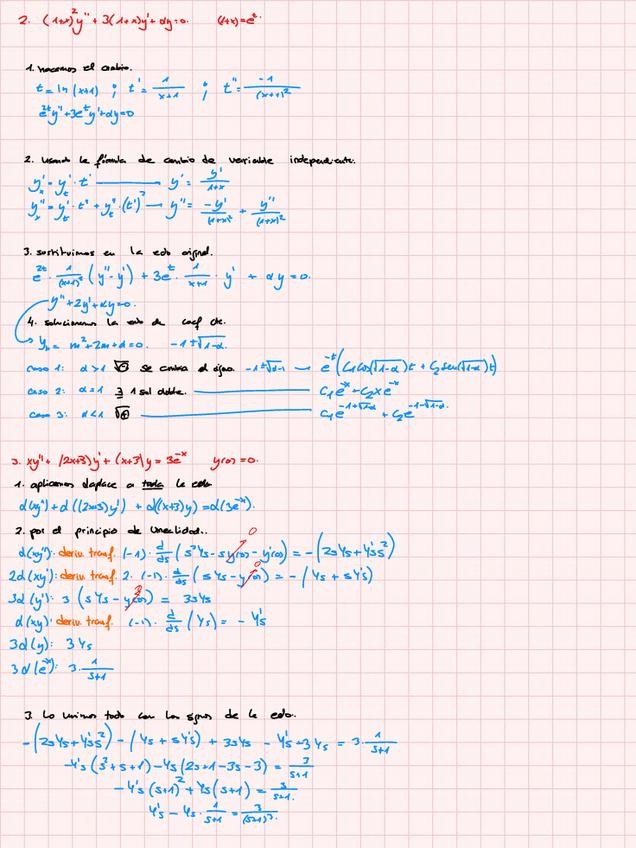 2. (1+x)²y'' + 3(1+x)y' + αy = 0. (1+x) = eᵗ.
1. hacemos el cambio.
t = ln(x+1) ; t' = 1/(x+1) ; t'' = -1/(x+1)²
e²ᵗy'' + 3eᵗy' + αy = 0
2. usando la fórmula de cambio de variable independiente.
y'ₓ = y'ₜ · t' → y' = y'/(1+x)
y''ₓ = y'ₜ · t'' + y''ₜ · (t')² → y'' = -y'/(1+x)² + y''/(1+x)²
3. sustituimos en la edo original.
e²ᵗ · 1/(x+1)² (y'' - y') + 3eᵗ · 1/(x+1) · y' + αy = 0.
y'' + 2y' + αy = 0.
4. solucionamos la edo de coef cte.
yₕ = m² + 2m + α = 0. -1 ± √(1-α).
caso 1: α > 1 √⊖ se cambia el signo. -1 ± √(α-1) → e⁻ᵗ(C₁cos(√(1-α))t + C₂sen(√(1-α))t)
caso 2: α = 1 ∃ 1 sol doble. C₁e⁻ˣ + C₂xe⁻ˣ
caso 3: α < 1 √⊕ C₁e^(-1+√(1-α)) + C₂e^(-1-√(1-α))
3. xy'' + (2x+3)y' + (x+3)y = 3e⁻ˣ y(0) = 0.
1. aplicamos laplace a toda la edo
L(xy'') + L((2x+3)y') + L((x+3)y) = L(3e⁻ˣ).
2. por el principio de linealidad..
L(xy''): deriv. transf. (-1) · d/ds (s²Ys - sy(0) - y'(0)) = -(2sYs + Y's s²) 0
2L(xy'): deriv. transf. 2 · (-1) · d/ds (sYs - y(0)) = -(Ys + sY's) 0
3L(y'): 3 (sYs - y(0)) = 3sYs 0
L(xy): deriv. transf. (-1) · d/ds (Ys) = -Y's
3L(y): 3Ys
3L(e⁻ˣ): 3 · 1/(s+1)
3. Lo unimos todo con los signos de la edo.
-(2sYs + Y's s²) - (Ys + sY's) + 3sYs - Y's + 3Ys = 3 · 1/(s+1)
-Y's (s² + s + 1) - Ys (2s + 1 - 3s - 3) = 3/(s+1)
-Y's (s+1)² + Ys (s+1) = 3/(s+1).
Y's - Ys · 1/(s+1) = 3/(s+1)³.